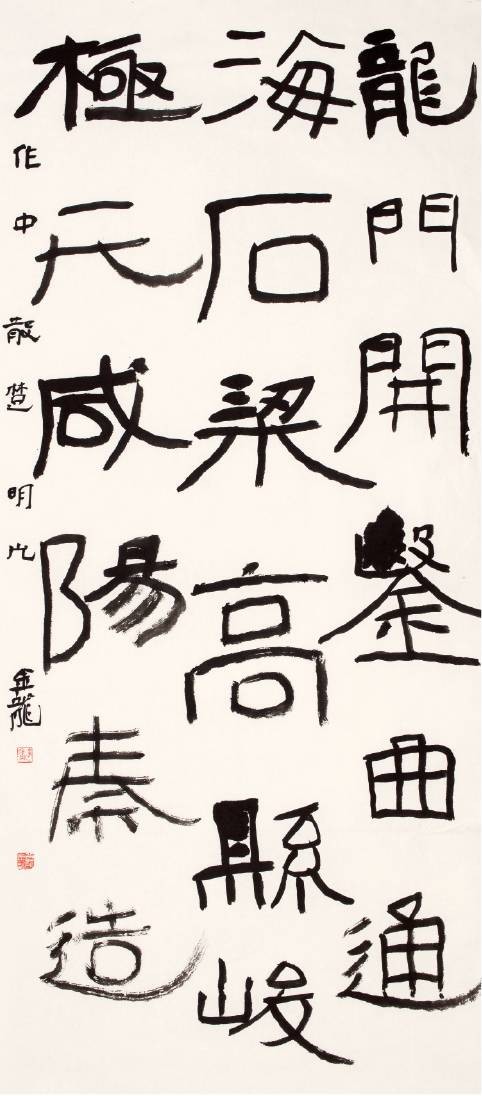 龍門開鑿曲通
海石梁高縣峻
極天咸陽秦造
作中散楚明
金龍